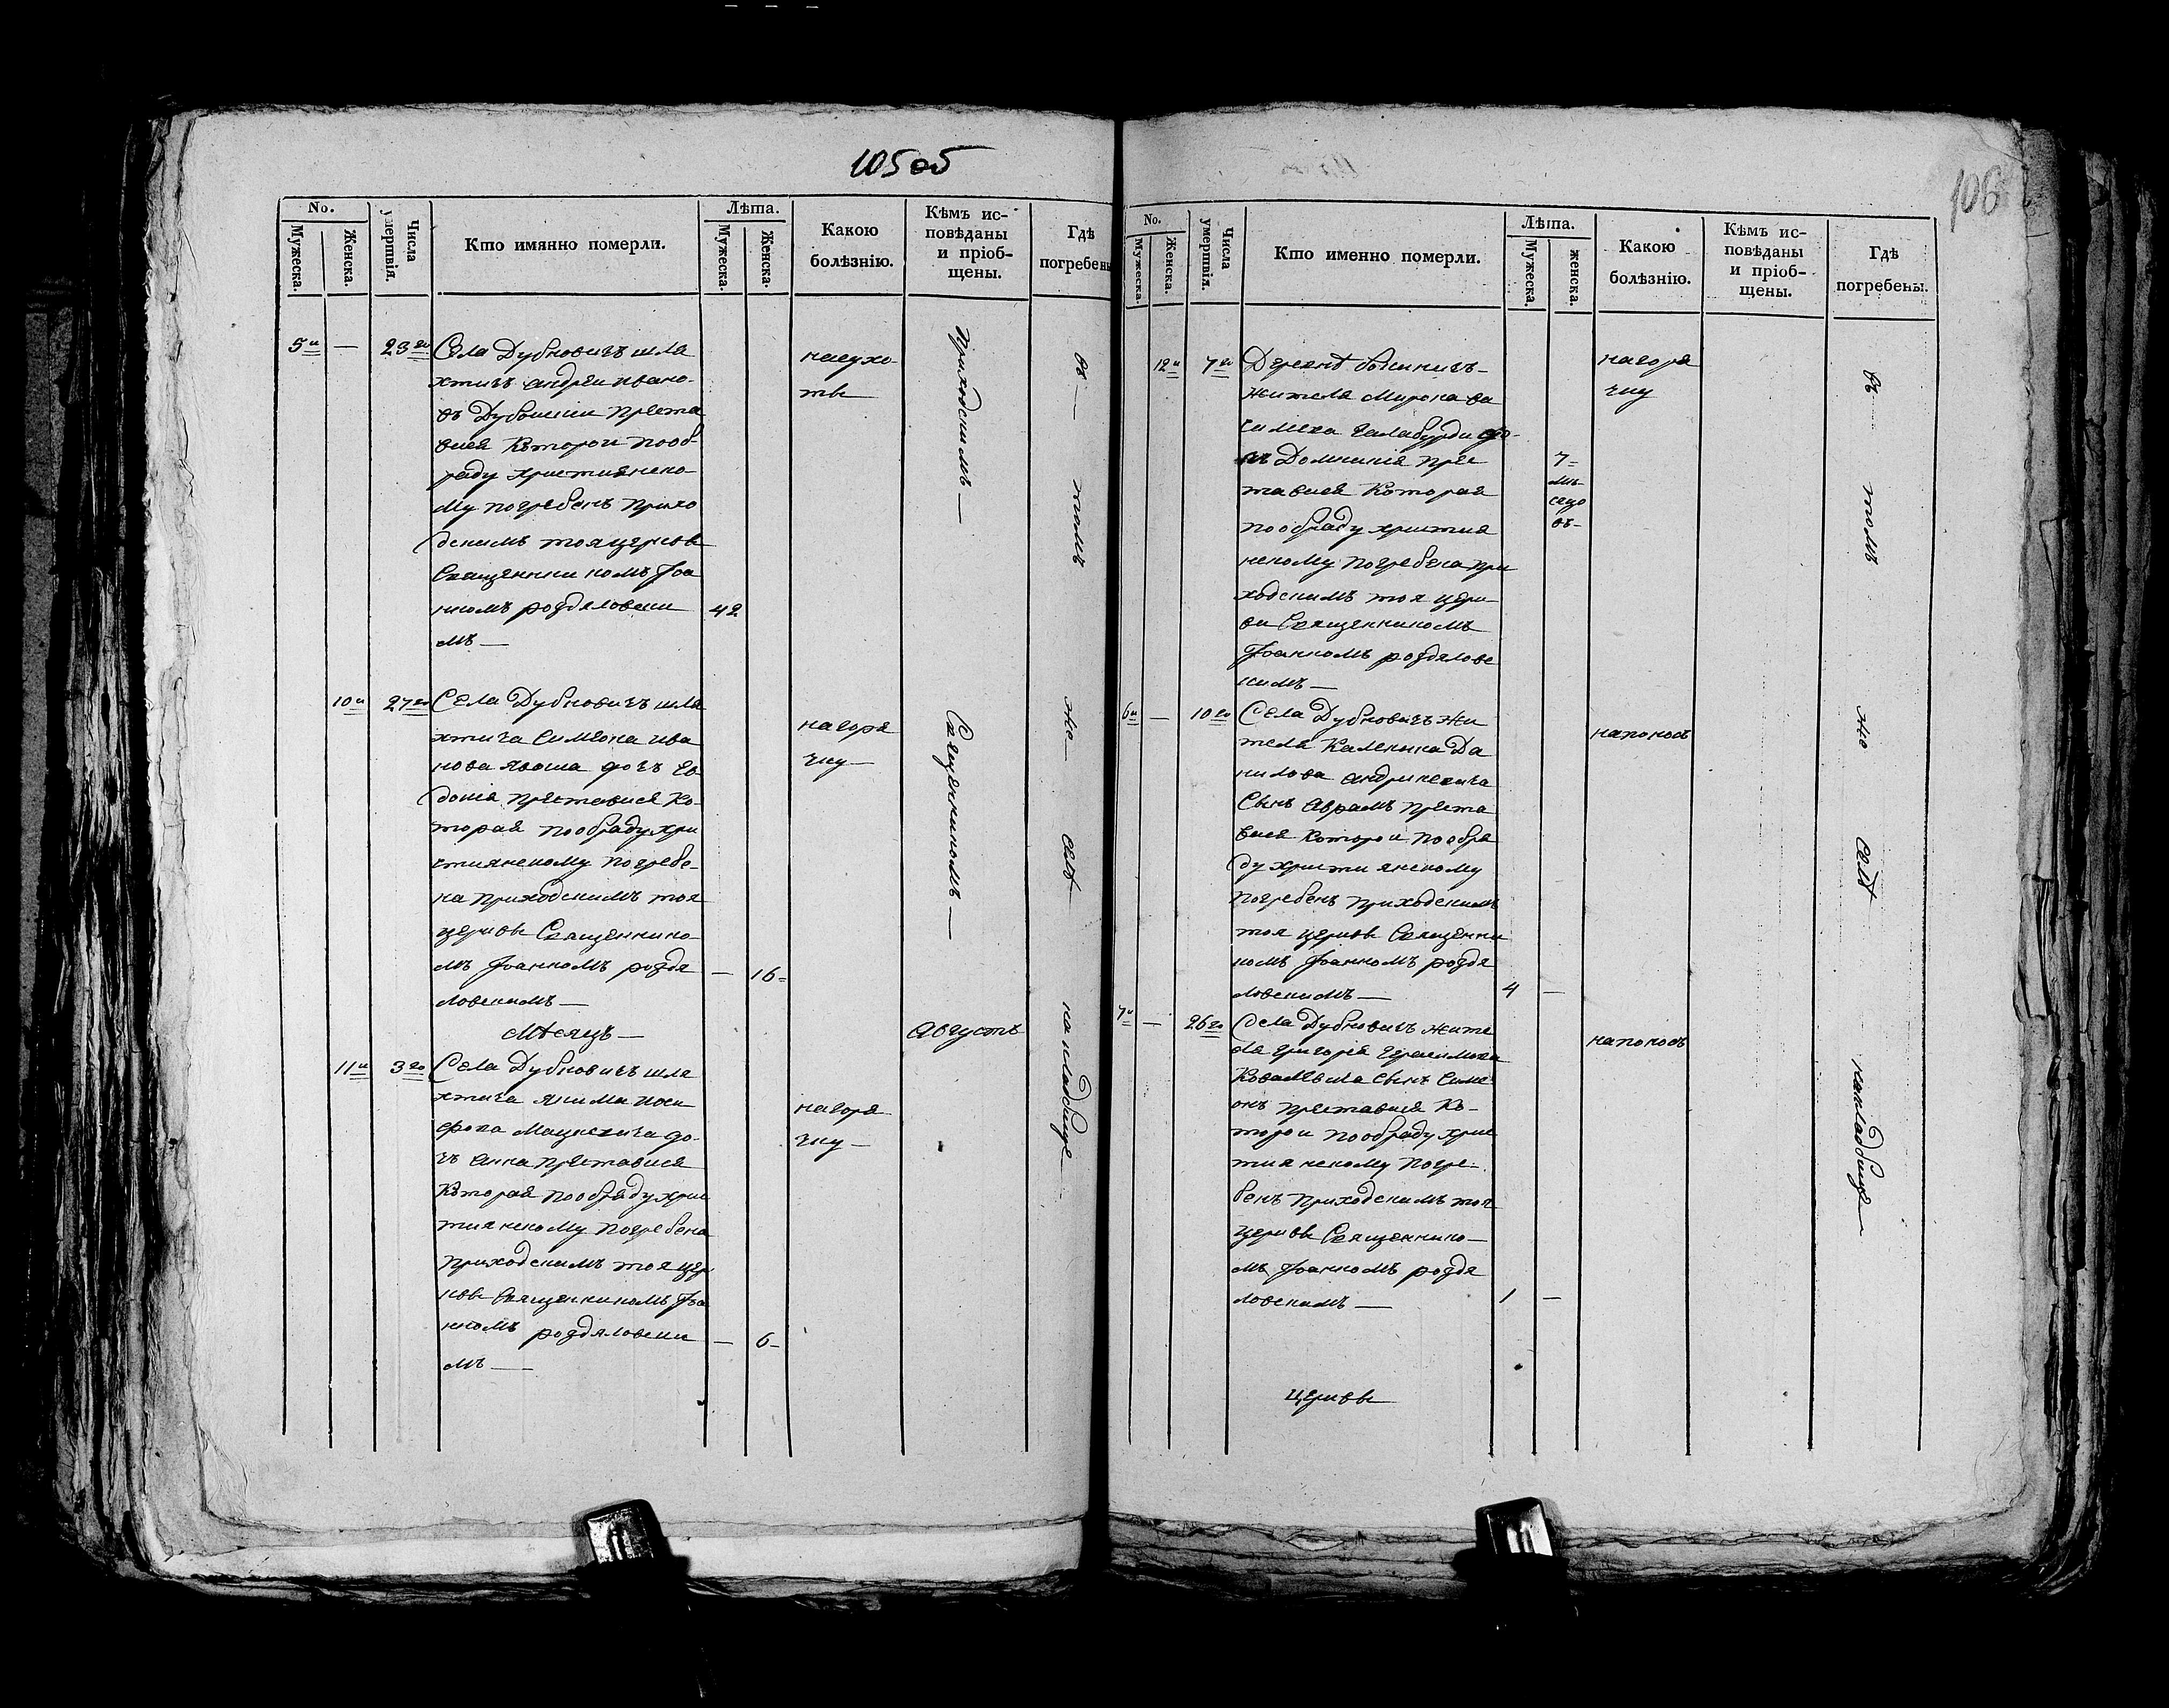 105 об
No.
Мужеска.
Женска.
Числа умертвія.
Кто имянно померли.
Лѣта.
Мужеска.
Женска.
Какою болѣзнію.
Кѣмъ ис-
повѣданы
и пріоб-
щены.
Гдѣ
погребены
5и — 23го
Села Дубновичъ шля
хтичъ андреи ивано-
въ Дубницкiи преста
вися которои пооб-
раду християнско-
му погребенъ прихо
дскимъ тоя церкви
Священникомъ Іоа
нномъ роздяловски
мъ —
42
насухо-
тъ
Приходскимъ —
въ — томъ же — селѣ — на кладбище —
10и 27го
Села Дубновичъ шля
хтича Симеона ива
нова яцыша дочъ ев
докiя преставися ко-
торая пообраду хри
стиянскому погребе-
на приходскимъ тоя
церкви Священнико-
мъ Іоанномъ роздя
ловскимъ —
— 16-
нагоря
чку —
Священникомъ —
Мѣсяцъ — Августъ
11и 3го
Села Дубновичъ шля
хтича якима иоси
фова Мацкевича до-
чъ анна преставися
Которая пообряду хрис
тиянскому погребена
приходскимъ тоя цер
кви Священникомъ Іоа
нномъ роздяловски
мъ —
— 6-
нагоря
чку —
106
No.
Мужеска.
Женска.
Числа умертвія.
Кто именно померли.
Лѣта.
Мужеска.
женска.
Какою
болѣзнію.
Кѣмъ ис-
повѣданы
и пріоб-
щены.
Гдѣ
погребены.
12и 7го
Деревнѣ
жителя Мирона ва
до-
чъ Домникiя прес
тавися Которая
пообраду християн
скому погребена при
ходскимъ тоя церк-
ви Священникомъ
Іоанномъ роздялово
скимъ —
7-
мѣ-
сяцо
въ-
нагоря
чку
въ — томъ же селѣ накладбище —
6и — 10го
Села Дубновичъ жи
теля Каленика Да
нилова андриевича
Сынъ аврамъ преста
вися которои пообря
ду християнскому
погребенъ приходскимъ
тоя церкви Священни
комъ Іоанномъ роздя
ловскимъ —
4 —
напоносъ
7и — 26го
Села Дубновичъ жите
ля григорiя герасимова
Ковалевича Сынъ Симе
онъ преставися Ко-
торои пообраду хрис
тиянскому погре-
бенъ приходскимъ тоя
церкви Священнико-
мъ Іоанномъ роздя
ловскимъ —
1 —
напоносъ
церкви